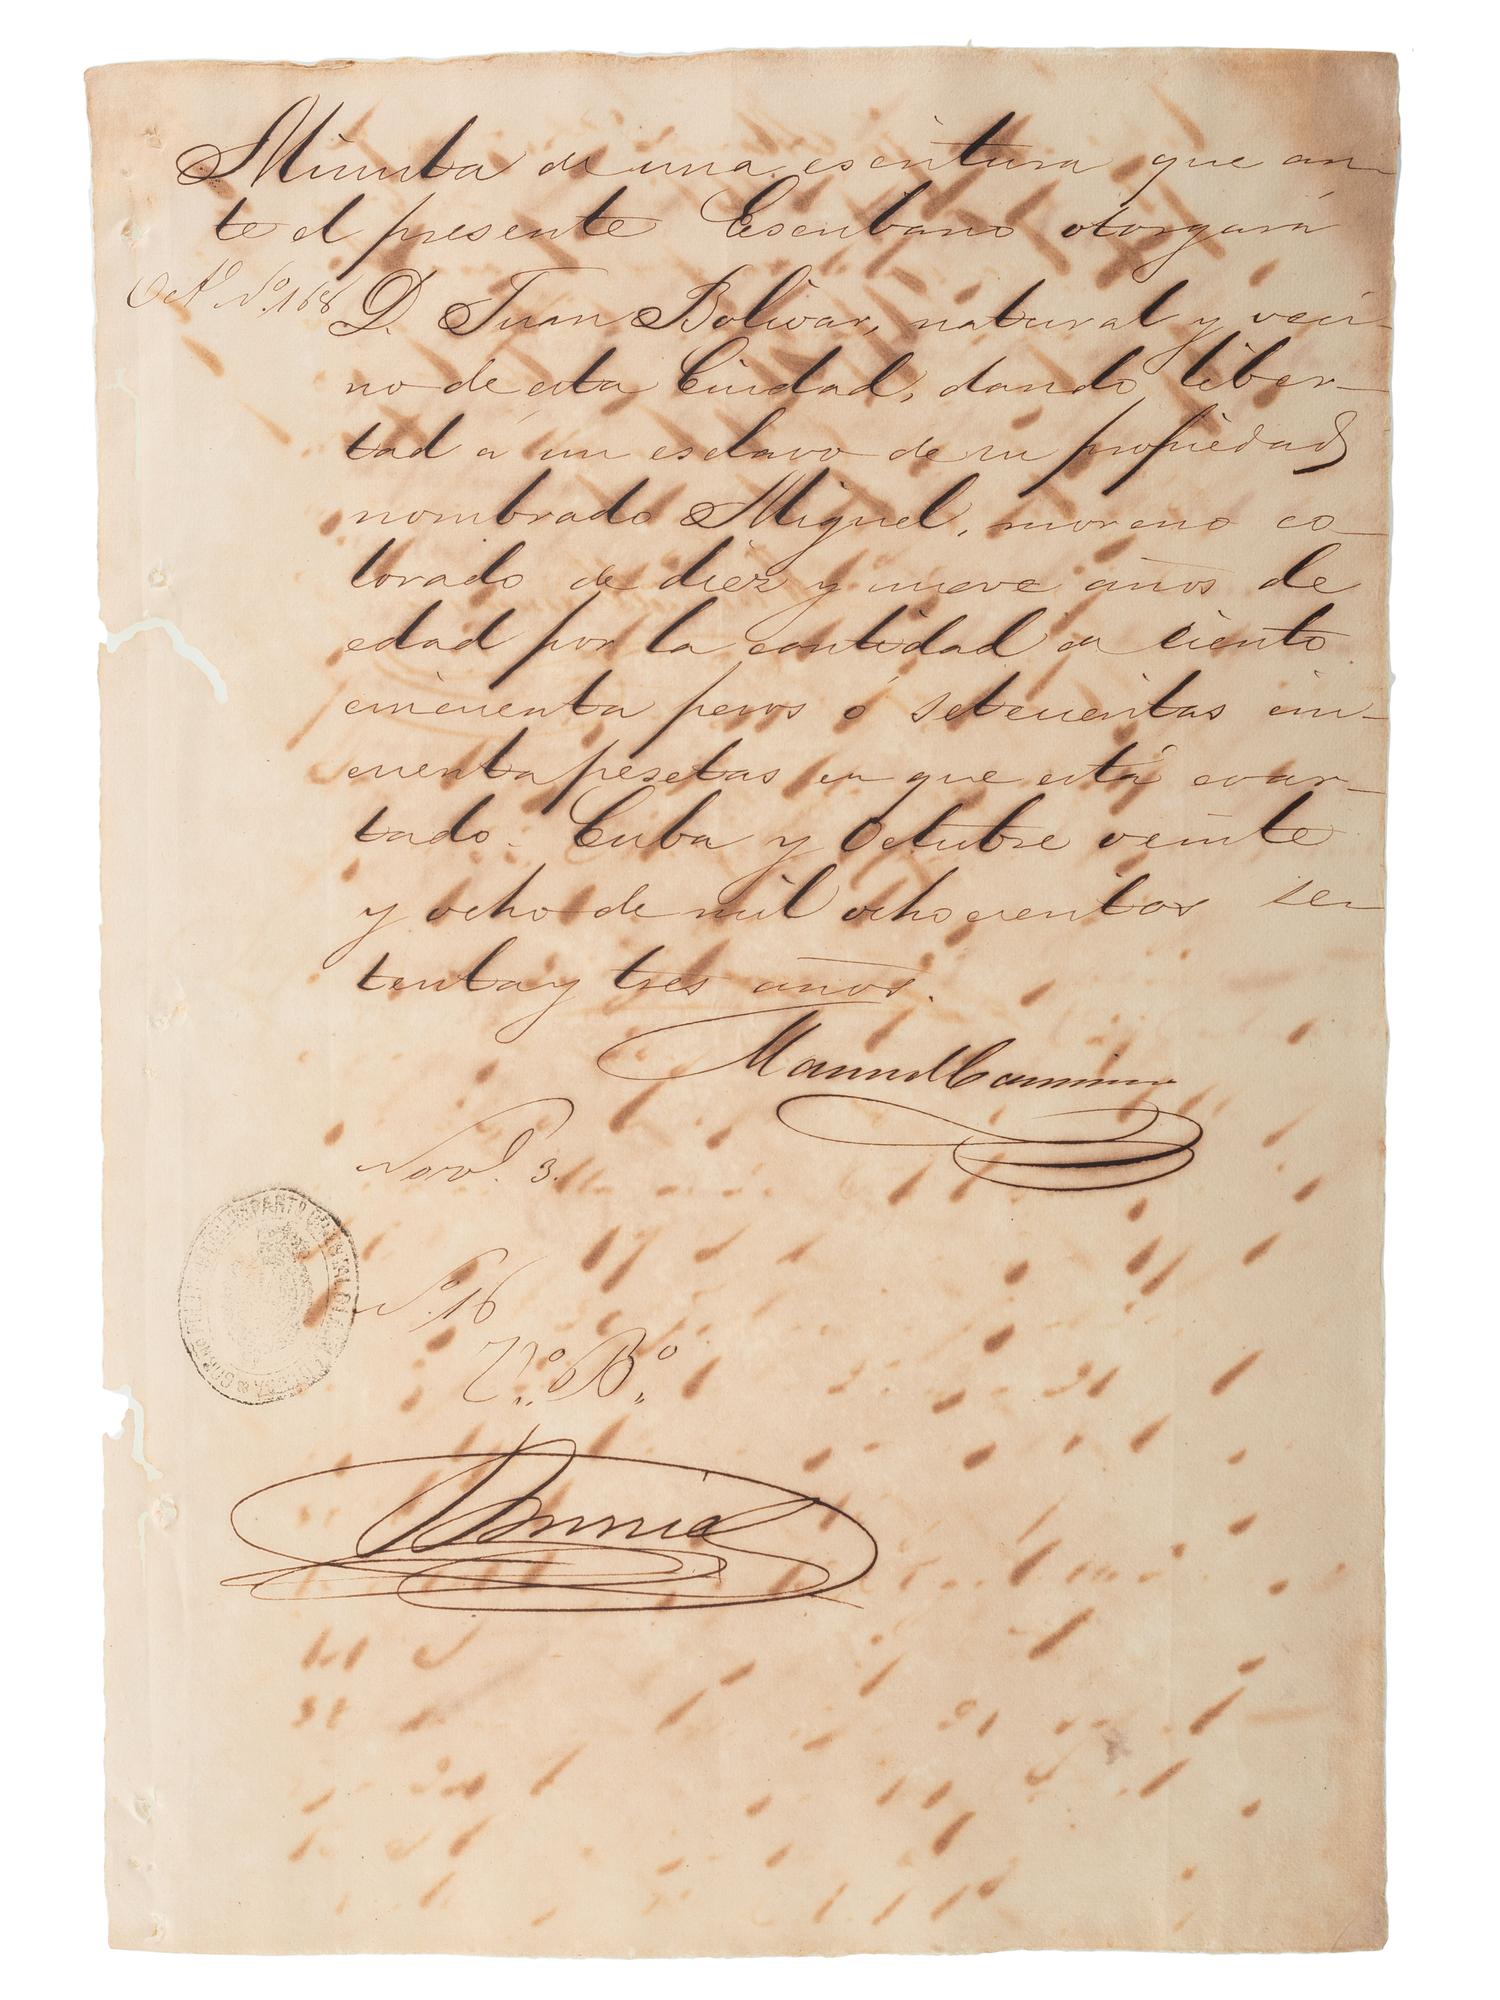 Minuta de una escritura que an-
te el presente Escribano otorgará
Oct.e No. 168
D. Juan Bolivar, natural y veci-
no de esta Ciudad, dando liber-
tad á un esclavo de su propiedad
nombrado Miguel, moreno co-
lorado de diez y nueve años de
edad por la cantidad de ciento
cincuenta pesos ó setecientas cin-
cuenta pesetas en que está coar-
tado. Cuba y Octubre veinte
y ocho de mil ochocientos se-
tenta y tres años.
Manuel Caminero
Nov.e 3.
No. 16
Vo. Bo.